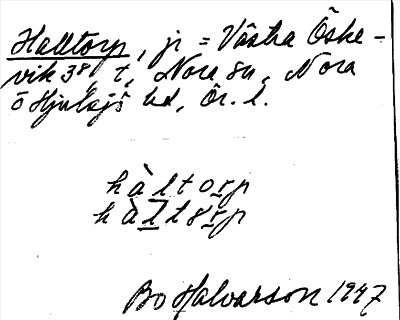 Halltorp, jr = Västra Öske-
vik 3⁸, t, Nora sn, Nora
o Hjulsjö hd, Ör. l.
hàltorp
hàltsrp
Bo Halvarson 1947